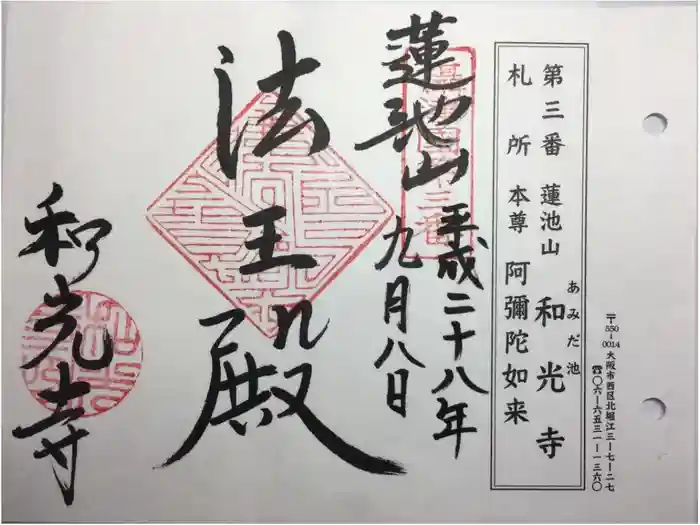 〒550-0014 大阪市西区北堀江三-七-二七
☎〇六-六五三一-一三六〇
第三番 蓮池山 和光寺
あみだ池
札所本尊 阿彌陀如来
蓮池山
平成二十八年
九月八日
法王殿
和光寺